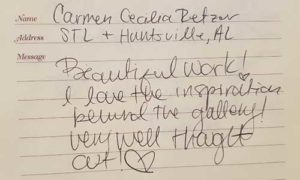 Name Carmen Cecilia Retzer
Address STL + Huntsville, AL
Message
Beautiful work!
I love the inspiration
behind the gallery!
Very well thaght
out!♡